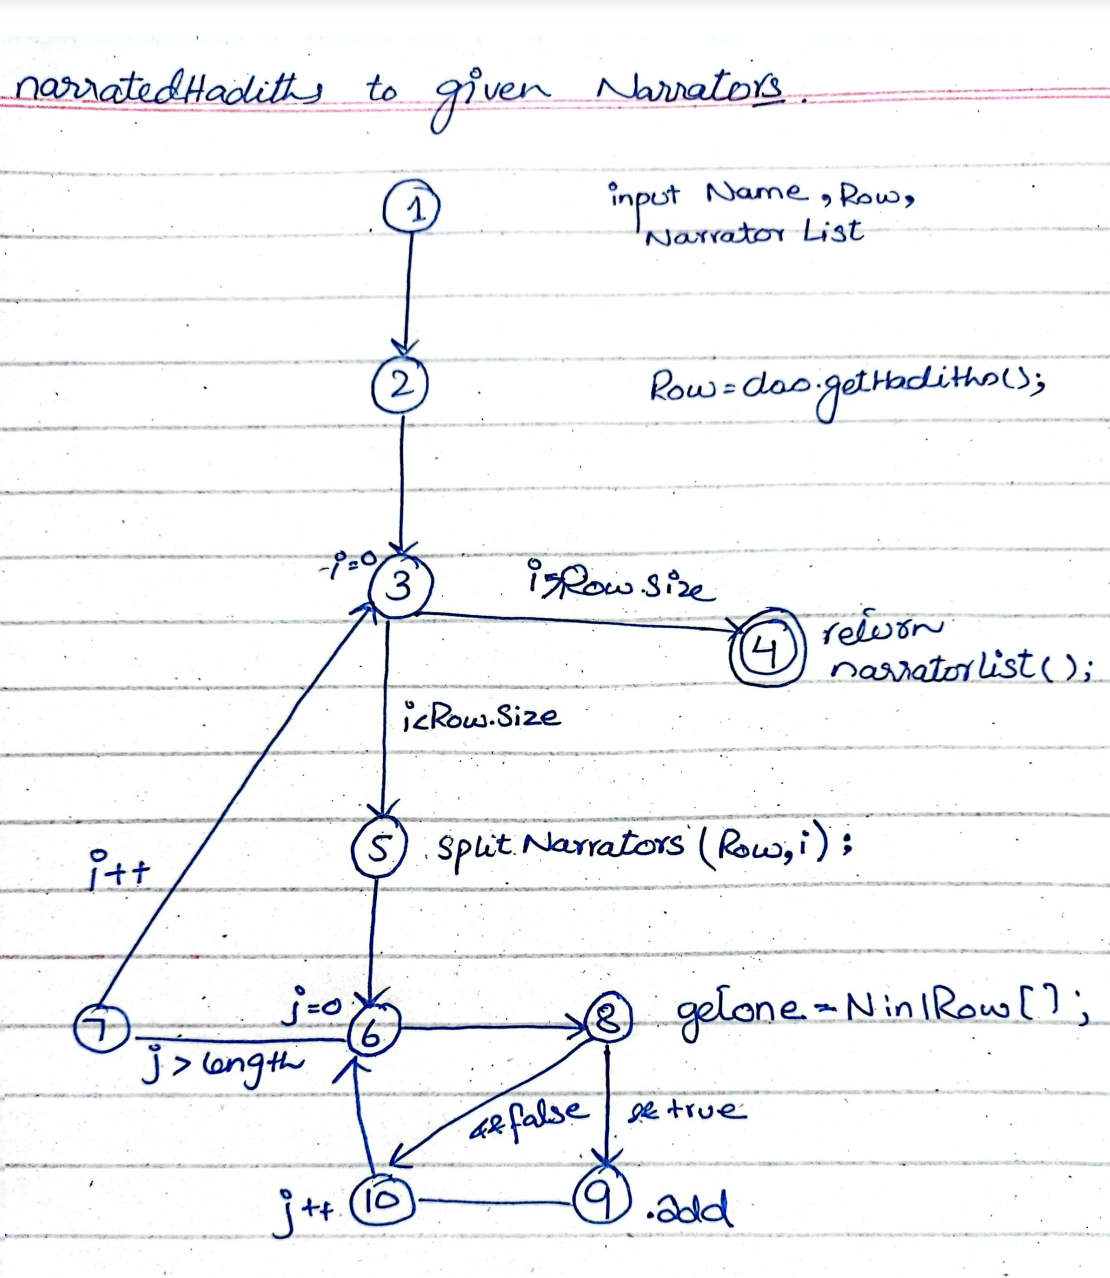 narratedHadiths to given Narrators.
1
input Name, Row,
Narrator List
2
Row=dao.getHadiths();
i=0
3
i>Row.size
4
return
narratorlist();
i<Row.Size
5
split Narrators (Row,i);
i++
7
j=0
6
8
getone = Nin1Row[];
j > length
false
true
j++
10
9
.add